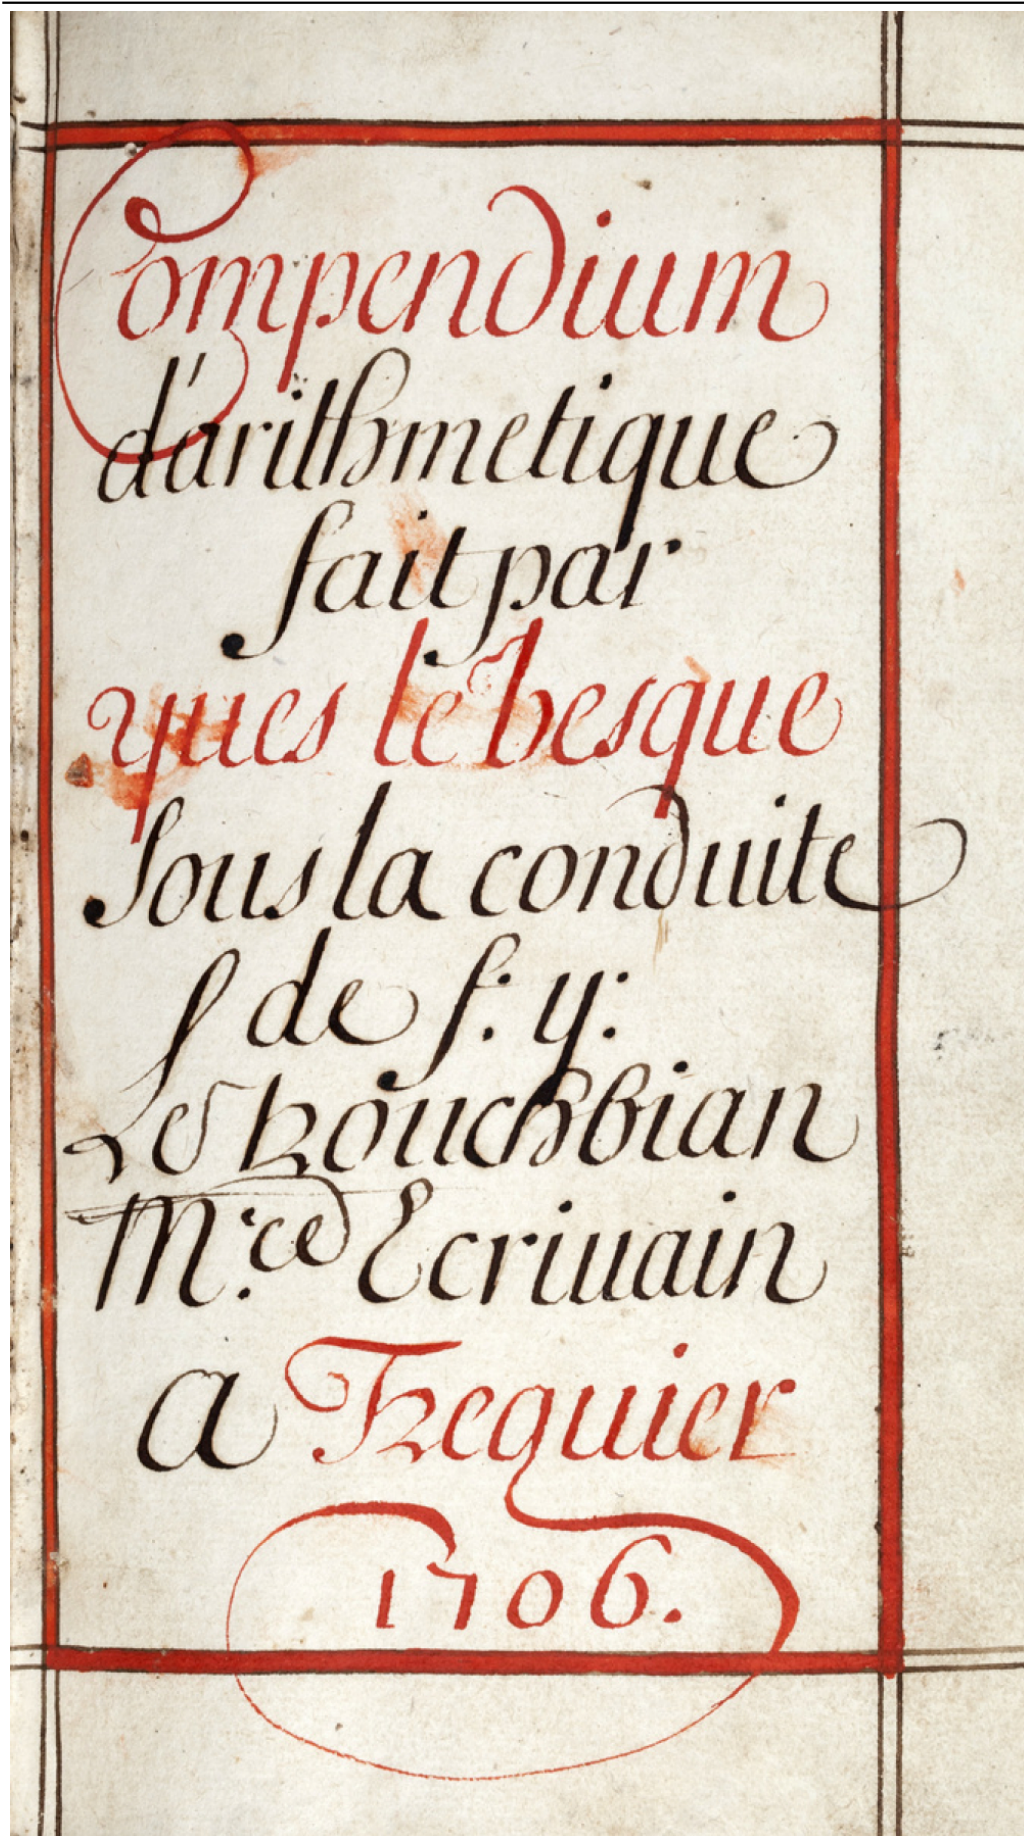 Compendium
d'arithmetique
fait par
yues le besque
Sous la conduite
de f: y:
Le Rouchbian
M.ce Ecriuain
a Treguier
1706.